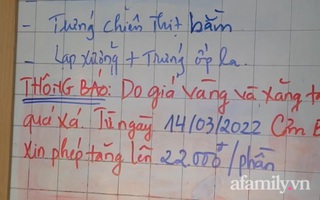 - Trứng chiên Thịt bằm
- Lạp xưởng + Trứng ốp la.
THÔNG BÁO: Do giá vàng và xăng
quá xá. Từ ngày 14/03/2022 Cơm
xin phép tăng lên 22.000đ/phần
afamily.vn